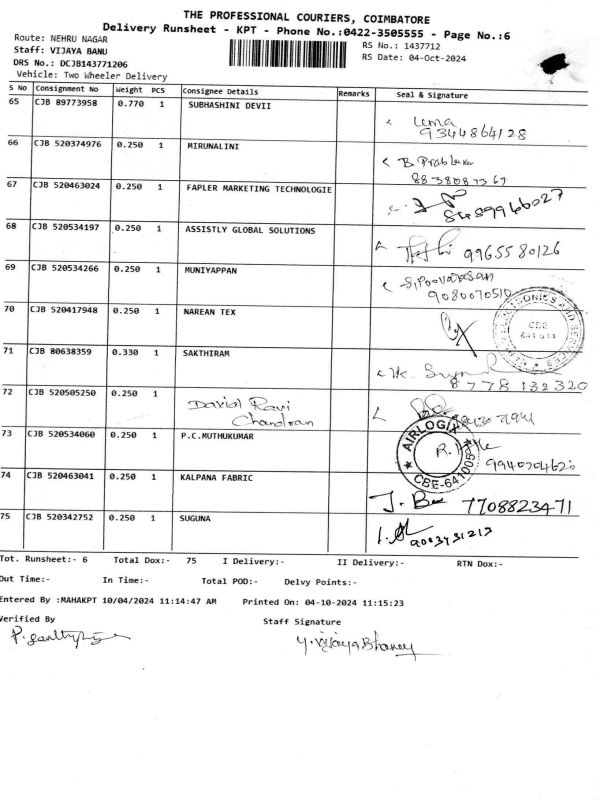 THE PROFESSIONAL COURIERS, COIMBATORE
Delivery Runsheet - KPT - Phone No.:0422-3505555 - Page No.:6
Route: NEHRU NAGAR
RS No.: 1437712
Staff: VIJAYA BANU
RS Date: 04-Oct-2024
DRS No.: DCJB143771206
Vehicle: Two Wheeler Delivery
S No Consignment No Weight PCS Consignee Details Remarks Seal & Signature
65 CJB 89773958 0.770 1 SUBHASHINI DEVII
Uma
9344864128
66 CJB 520374976 0.250 1 MIRUNALINI
B. Prabhakar
67 CJB 520463024 0.250 1 FAPLER MARKETING TECHNOLOGIE
8489966027
68 CJB 520534197 0.250 1 ASSISTLY GLOBAL SOLUTIONS
9965580126
69 CJB 520534266 0.250 1 MUNIYAPPAN
S. Poovarasan
9080070510
70 CJB 520417948 0.250 1 NAREAN TEX
CBE
71 CJB 80638359 0.330 1 SAKTHIRAM
8778132320
72 CJB 520505250 0.250 1 David Ravi
Chandran
73 CJB 520534060 0.250 1 P.C.MUTHUKUMAR
AIRLOGIX
CBE-641005
74 CJB 520463041 0.250 1 KALPANA FABRIC
7708823471
75 CJB 520342752 0.250 1 SUGUNA
Tot. Runsheet:- 6 Total Dox:- 75 I Delivery:- II Delivery:- RTN Dox:-
Out Time:- In Time:- Total POD:- Delvy Points:-
Entered By :MAHAKPT 10/04/2024 11:14:47 AM Printed On: 04-10-2024 11:15:23
Verified By Staff Signature
Y. Vijaya Bhaney